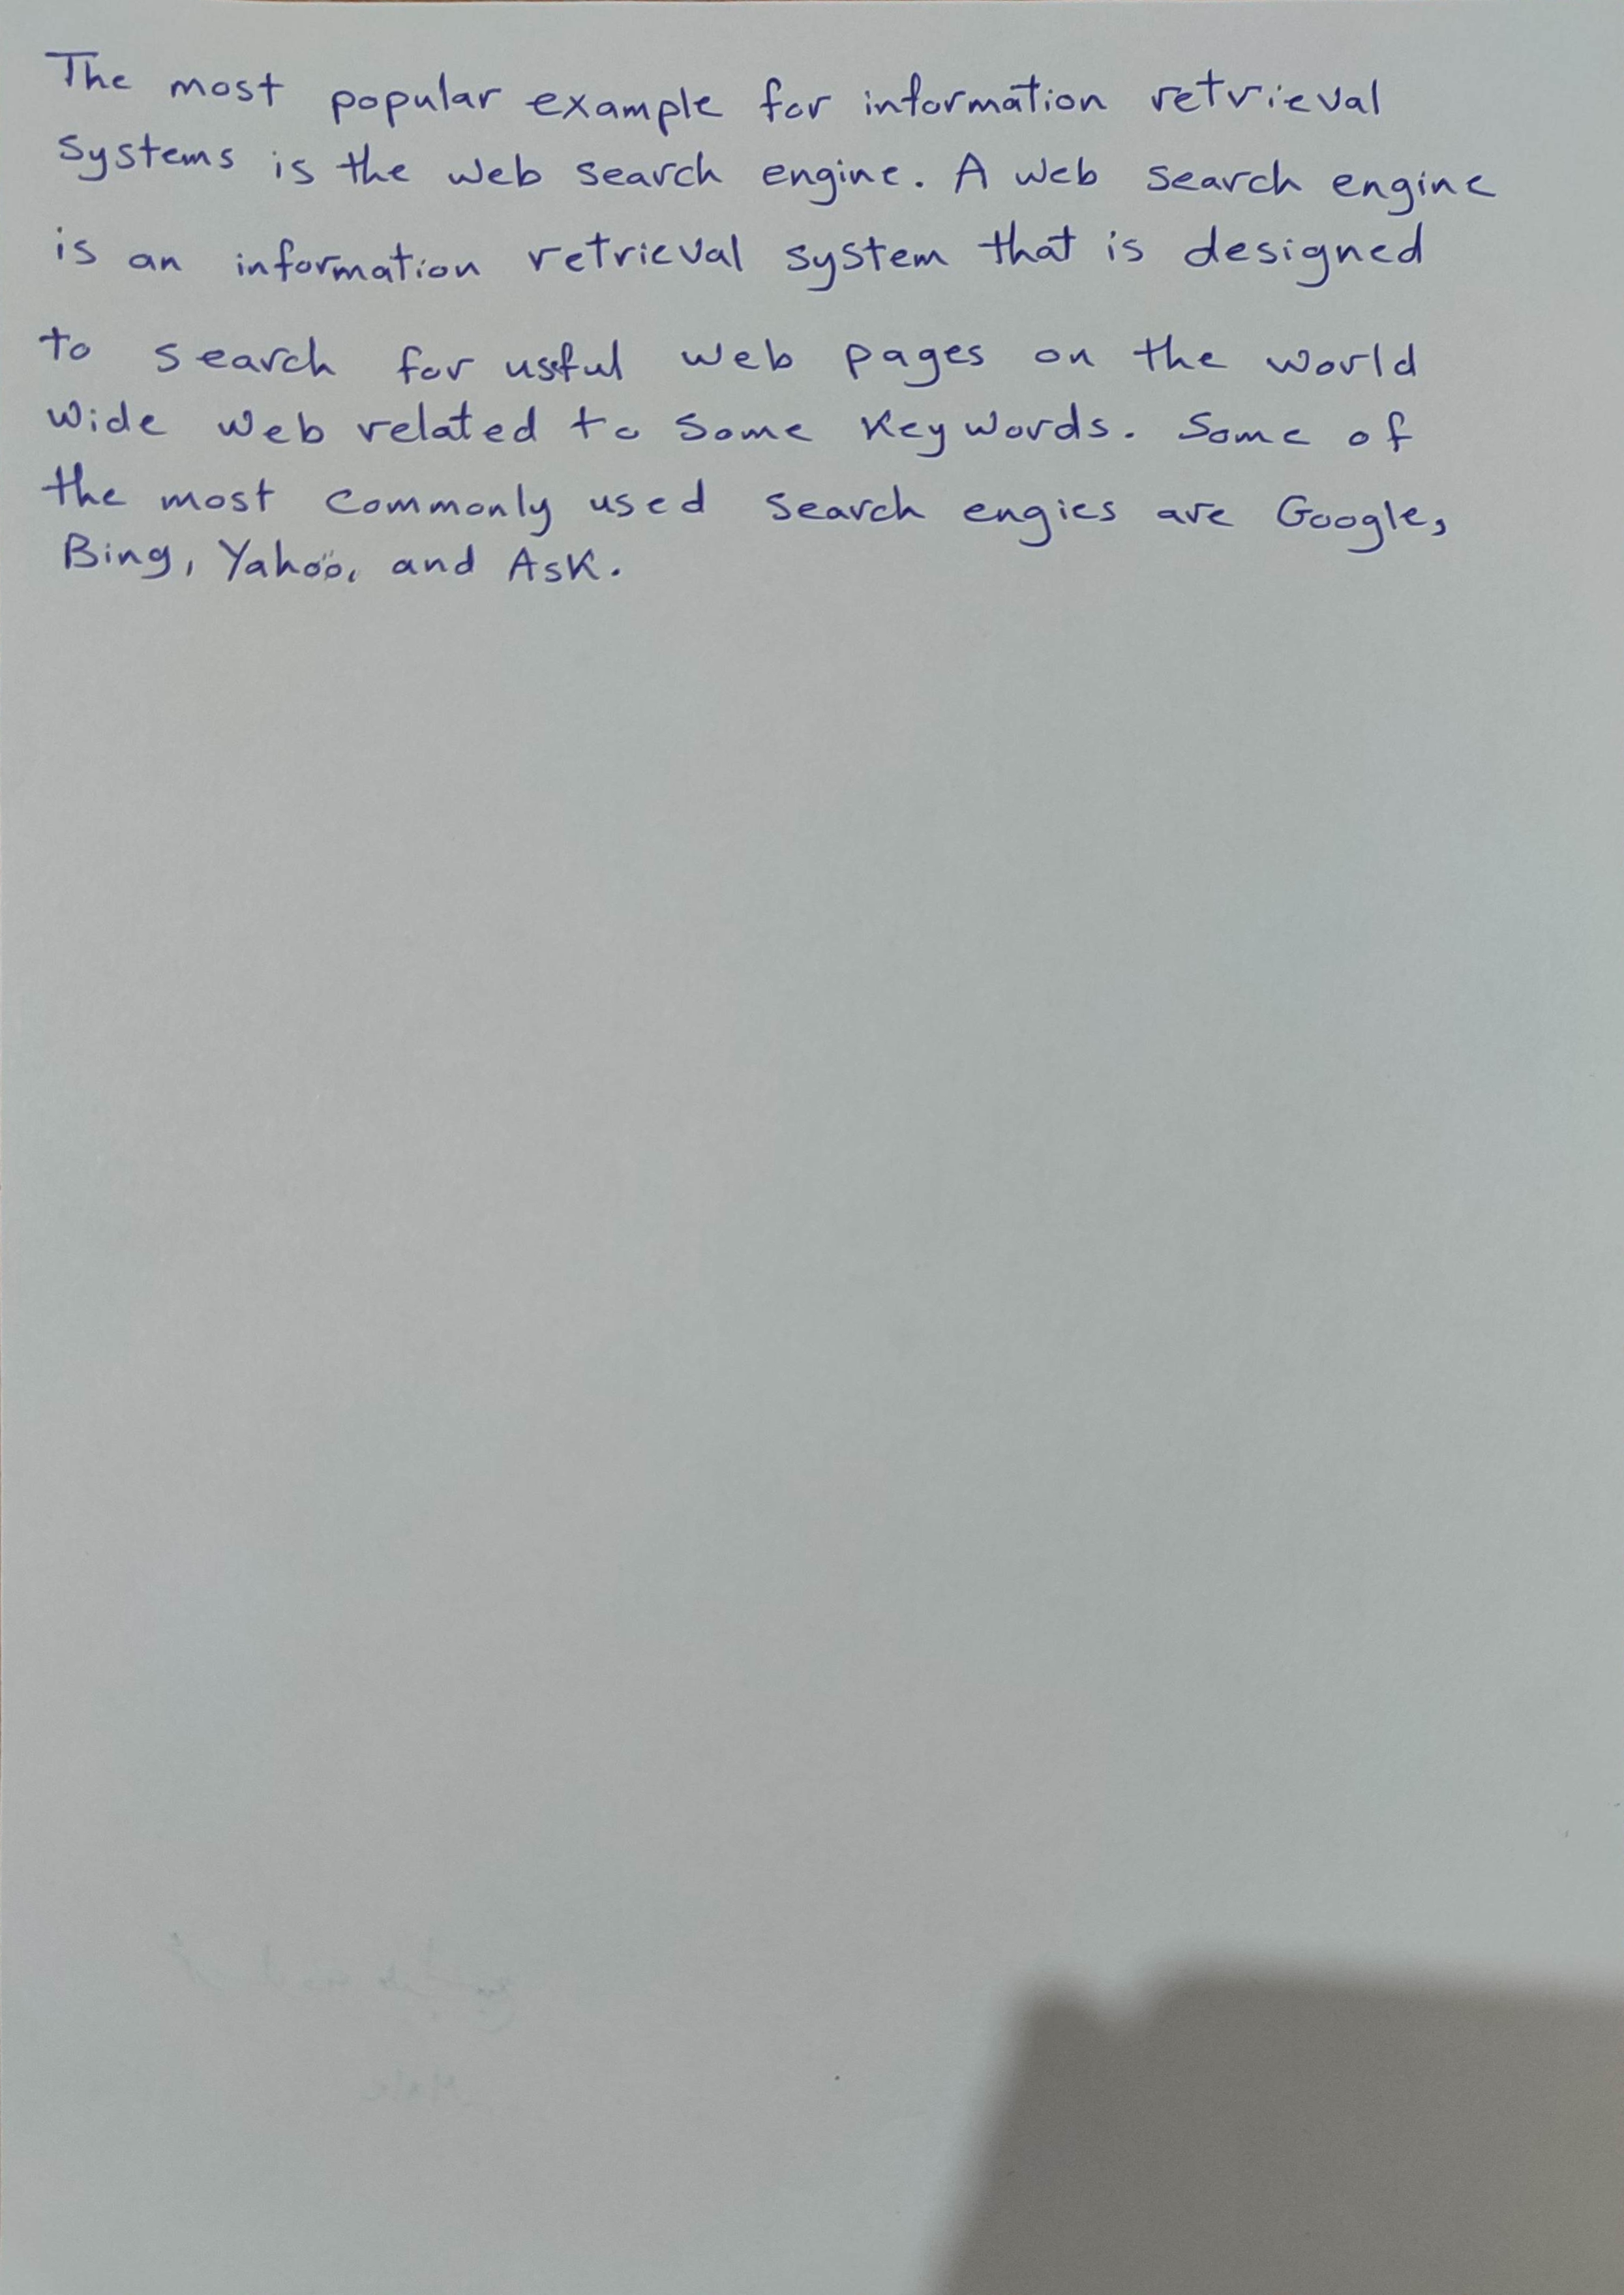 The most popular example for information retrieval
systems is the web search engine. A web search engine
is an information retrieval system that is designed
to search for useful web pages on the world
wide web related to some keywords. Some of
the most commonly used search engies are Google,
Bing, Yahoo, and Ask.